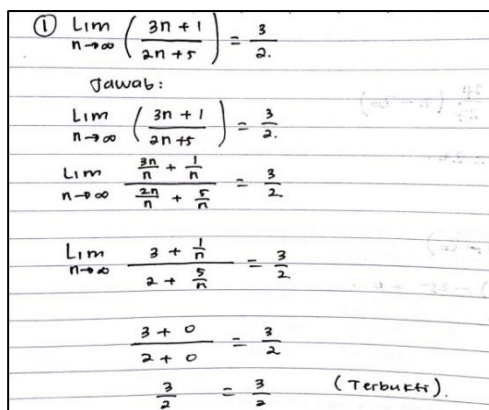 ① Lim n→∞ (3n + 1 / 2n + 5) = 3/2.
Jawab:
Lim n→∞ (3n + 1 / 2n + 5) = 3/2.
Lim n→∞ (3n/n + 1/n) / (2n/n + 5/n) = 3/2
Lim n→∞ (3 + 1/n) / (2 + 5/n) = 3/2
(3 + 0) / (2 + 0) = 3/2
3/2 = 3/2 (Terbukti).